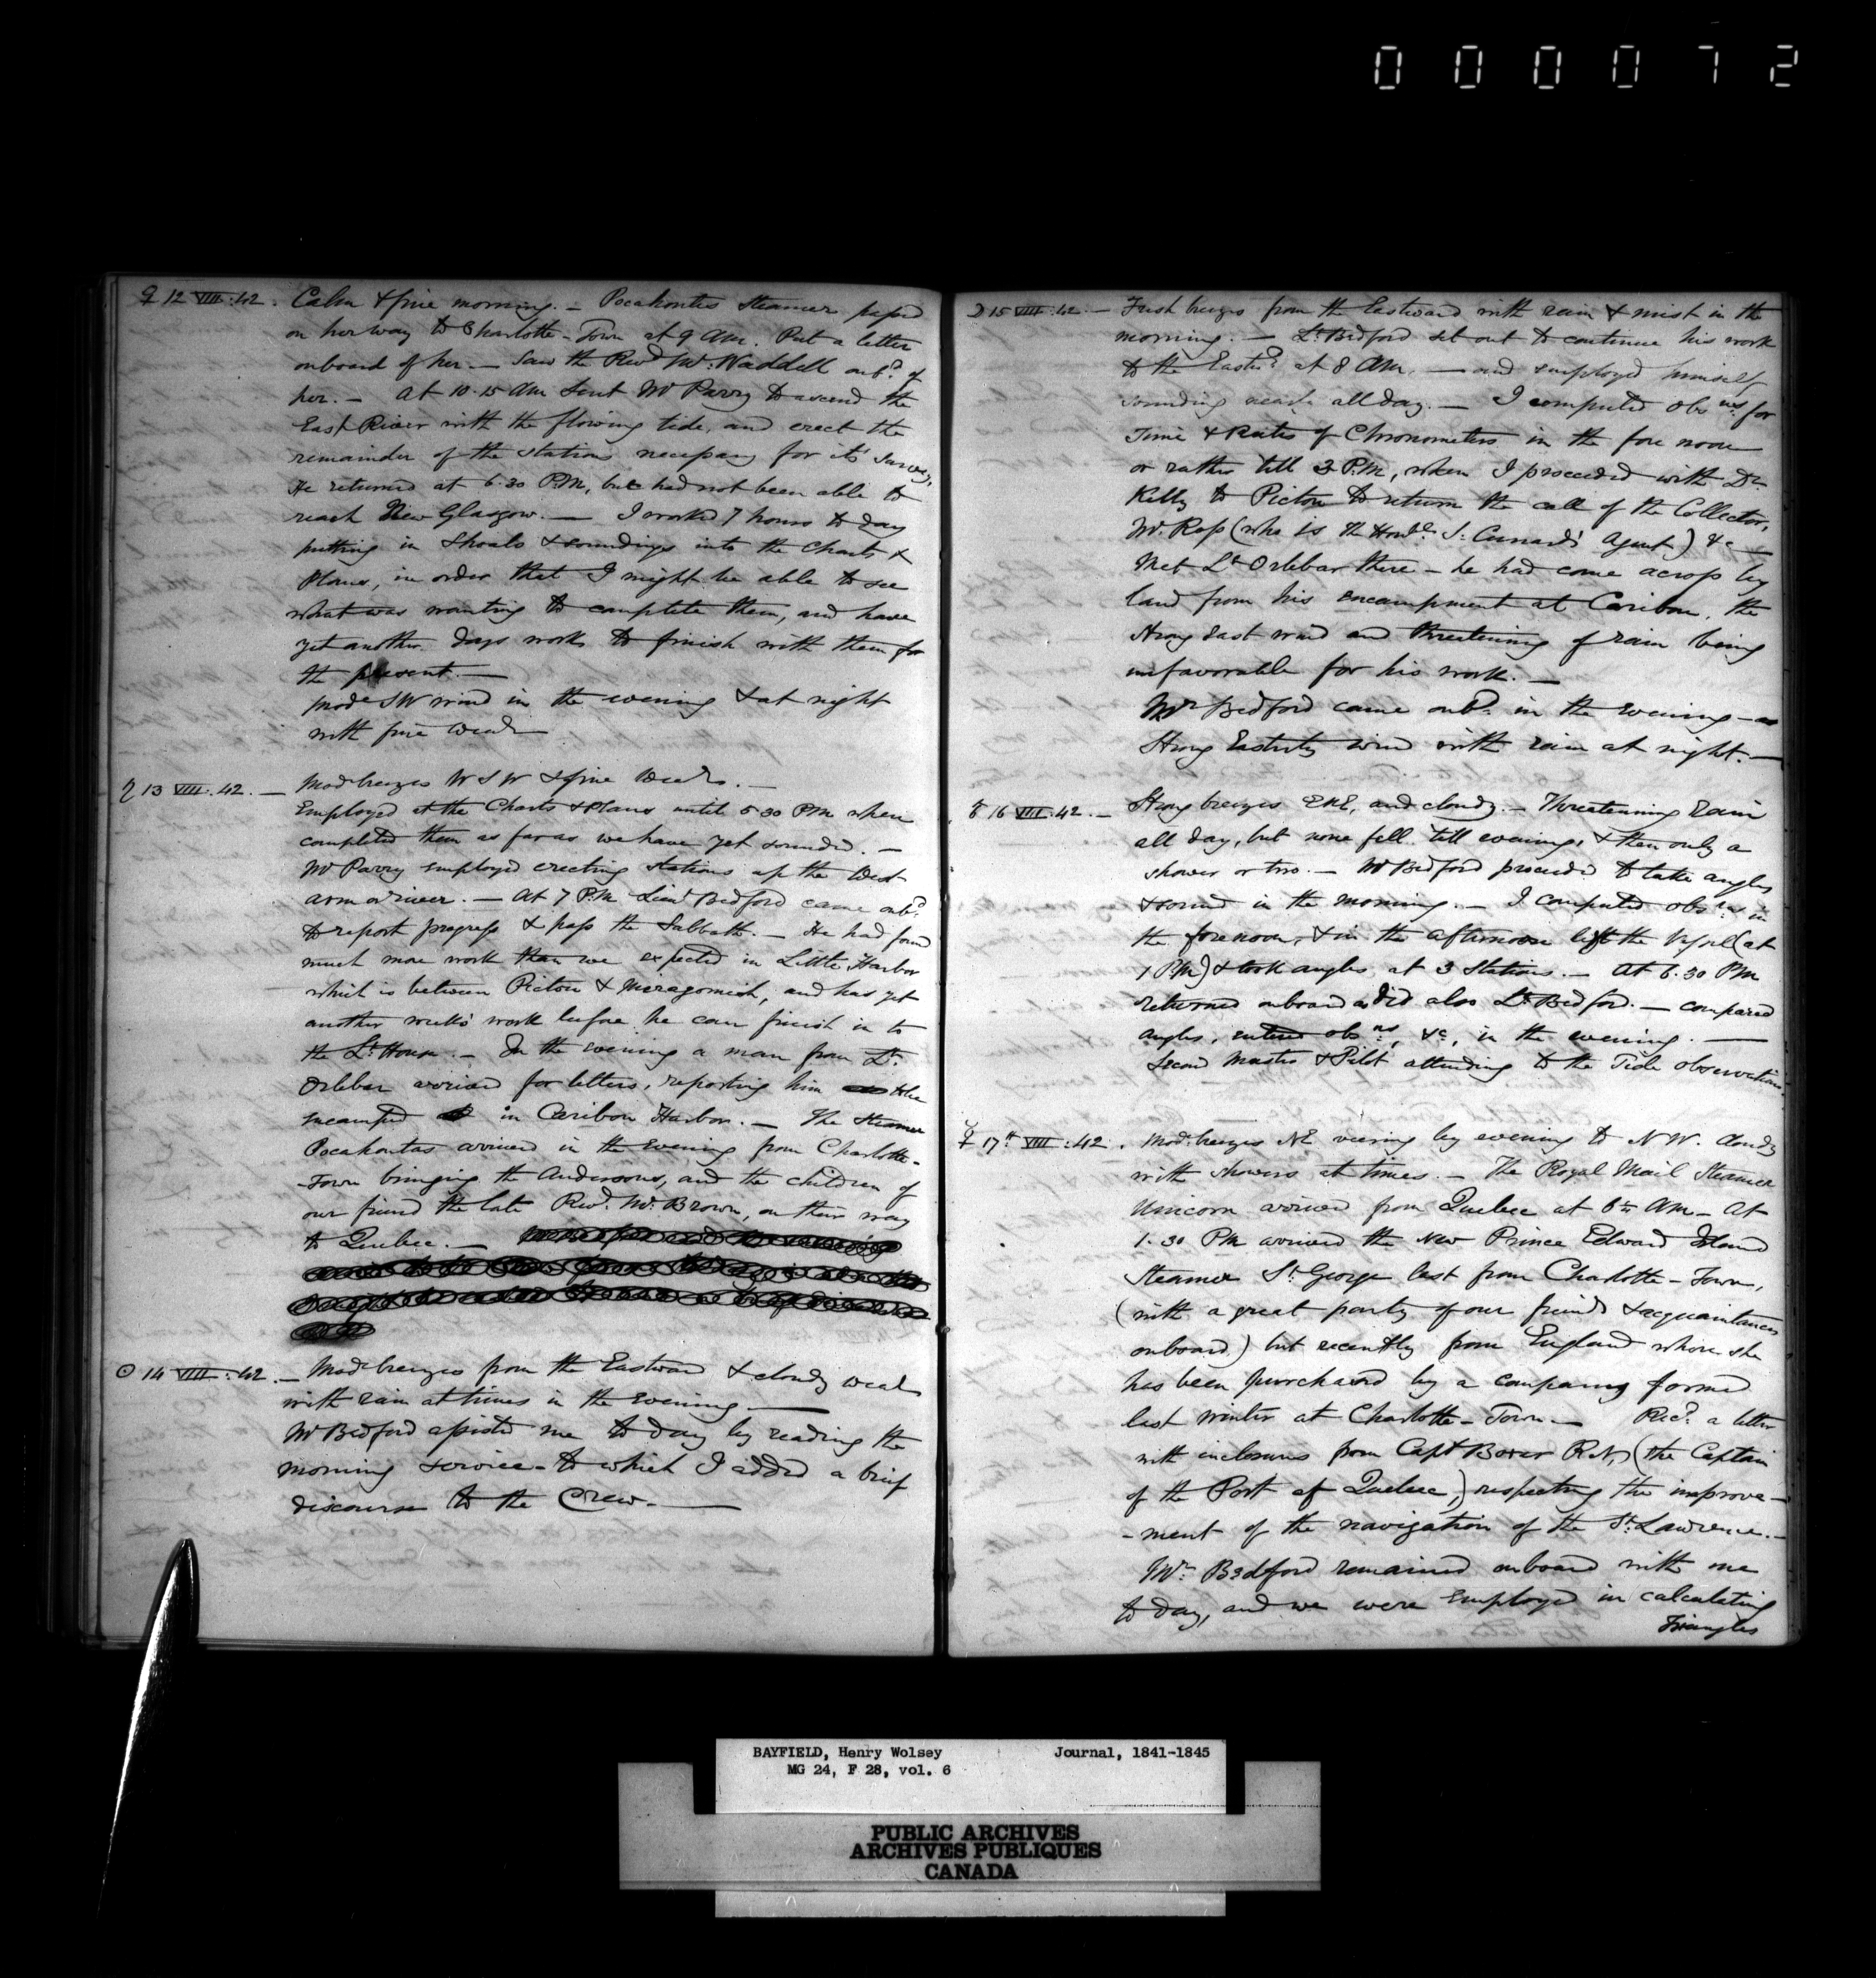 000072
♀ 12 VIII. 42. Calm & fine morning. — Pocahontas Steamer passed
on her way to Charlotte-Town at 9 AM. Put a letter
onboard of her. — Saw the Revd Mr. Waddell onbd. of
her. — At 10.15 AM Sent Mr Parry to ascend the
East River with the flowing tide, and erect the
remainder of the stations necessary for its Survey.
He returned at 6.30 P.M, but had not been able to
reach New Glasgow. — I worked 7 hours to day
putting in Shoals & soundings into the Charts &
Plans, in order that I might be able to see
what was wanting to complete them, and have
yet another days work to finish with them for
the present. —
Mode SW wind in the evening & at night
with fine Weathr
♄ 13 VIII. 42. — Modbreezes W S W & fine Weathr. —
Employed at the Charts & Plans until 5 30 PM when
completed them as far as we have yet sounded. —
Mr Parry employed erecting Stations up the West
arm or river. — At 7 P.M. Lieut Bedford came onbd.
to report progress & pass the Sabbath. — He had found
much more work than we expected in Little Harbor
which is between Pictou & Merigomish, and has yet
another week's work before he can finish in to
the Lt. House. — In the evening a man from Lt.
Orlebar arrived for letters, reporting him to be
encamped in Caribou Harbor. — The Steamer
Pocahontas arrived in the Evening from Charlotte-
-Town bringing the Andersons, and the children of
our friend the late Revd. Mr. Brown, on their way
to Quebec. —
☉ 14 VIII. 42. — Modbreezes from the Eastward & cloudy weathr
with rain at times in the Evening. —
Mr Bedford assisted me to day by reading the
morning service — to which I added a brief
discourse to the Crew. —
☽ 15 VIII. 42. — Fresh breezes from the Eastward with rain & mist in the
morning. — Lt. Bedford set out to continue his work
to the Eastd. at 8 AM, — and employed himself
sounding nearly all day. — I computed Obsns. for
Time & Rates of Chronometers in the fore noon
or rather till 3 P.M, when I proceeded with Dr.
Kelly to Pictou to return the call of the Collector,
Mr. Ross (who is the Honble. S. Cunard's Agent) &c —
Met Lt Orlebar there — he had come across by
land from his encampment at Caribou, the
strong East wind and threatening of rain being
unfavorable for his work. —
Mr Bedford came onbd. in the Evening —
Strong Easterly wind with rain at night. —
♂ 16 VIII. 42. — Strong breezes ENE, and cloudy. — Threatening Rain
all day, but none fell till evening, & then only a
shower or two. — Mr Bedford proceeded to take angles
& sound in the morning. — I computed obsns. in
the forenoon, & in the afternoon left the Vessel (at
1 P.M) & took angles at 3 Stations. — At 6.30 PM
returned onboard as did also Lt. Bedford. — compared
angles, entered obsns, &c, in the evening. —
Second Master & Pilot attending to the Tide observations.
☿ 17th VIII. 42. Modbreezes NE veering by evening to N W. cloudy
with showers at times. — The Royal Mail Steamer
Unicorn arrived from Quebec at AM — At
1.30 PM arrived the New Prince Edward Island
Steamer St. George last from Charlotte-Town,
(with a great party of our friends & acquaintances
onboard) but recently from England where she
has been purchased by a company formed
last winter at Charlotte-Town — Recd. a letter
with inclosures from Capt Boxer R.N, (the Captain
of the Port of Quebec,) respecting the improve-
-ment of the navigation of the St. Lawrence. —
Mr. Bedford remained onboard with me
to day, and we were employed in calculating
Triangles
BAYFIELD, Henry Wolsey Journal, 1841-1845
MG 24, F 28, vol. 6
PUBLIC ARCHIVES
ARCHIVES PUBLIQUES
CANADA